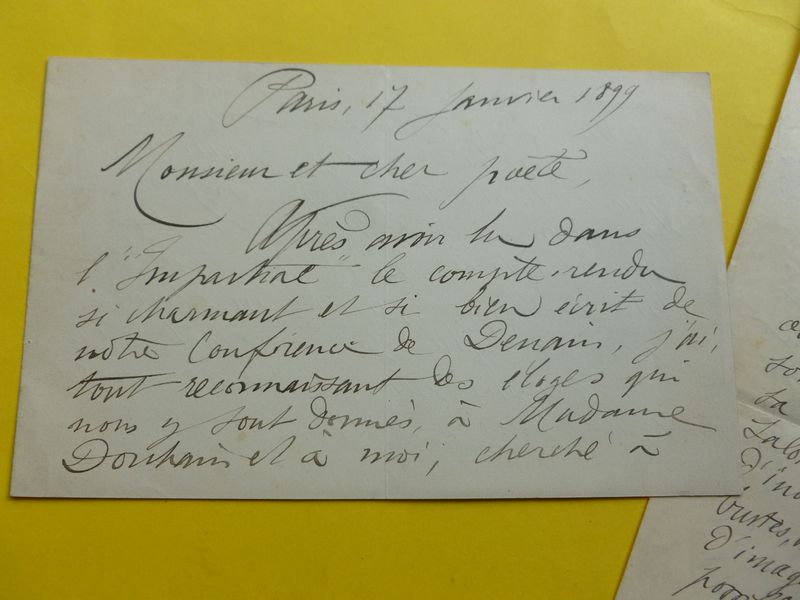 Paris, 17 Janvier 1899
Monsieur et cher poète,
Après avoir lu dans
l'"Impartial" le compte-rendu
si charmant et si bien écrit de
notre Conférence de Denain, j'ai,
tout reconnaissant des éloges qui
nous y sont donnés, à Madame
et à moi, cherché à
d'imag